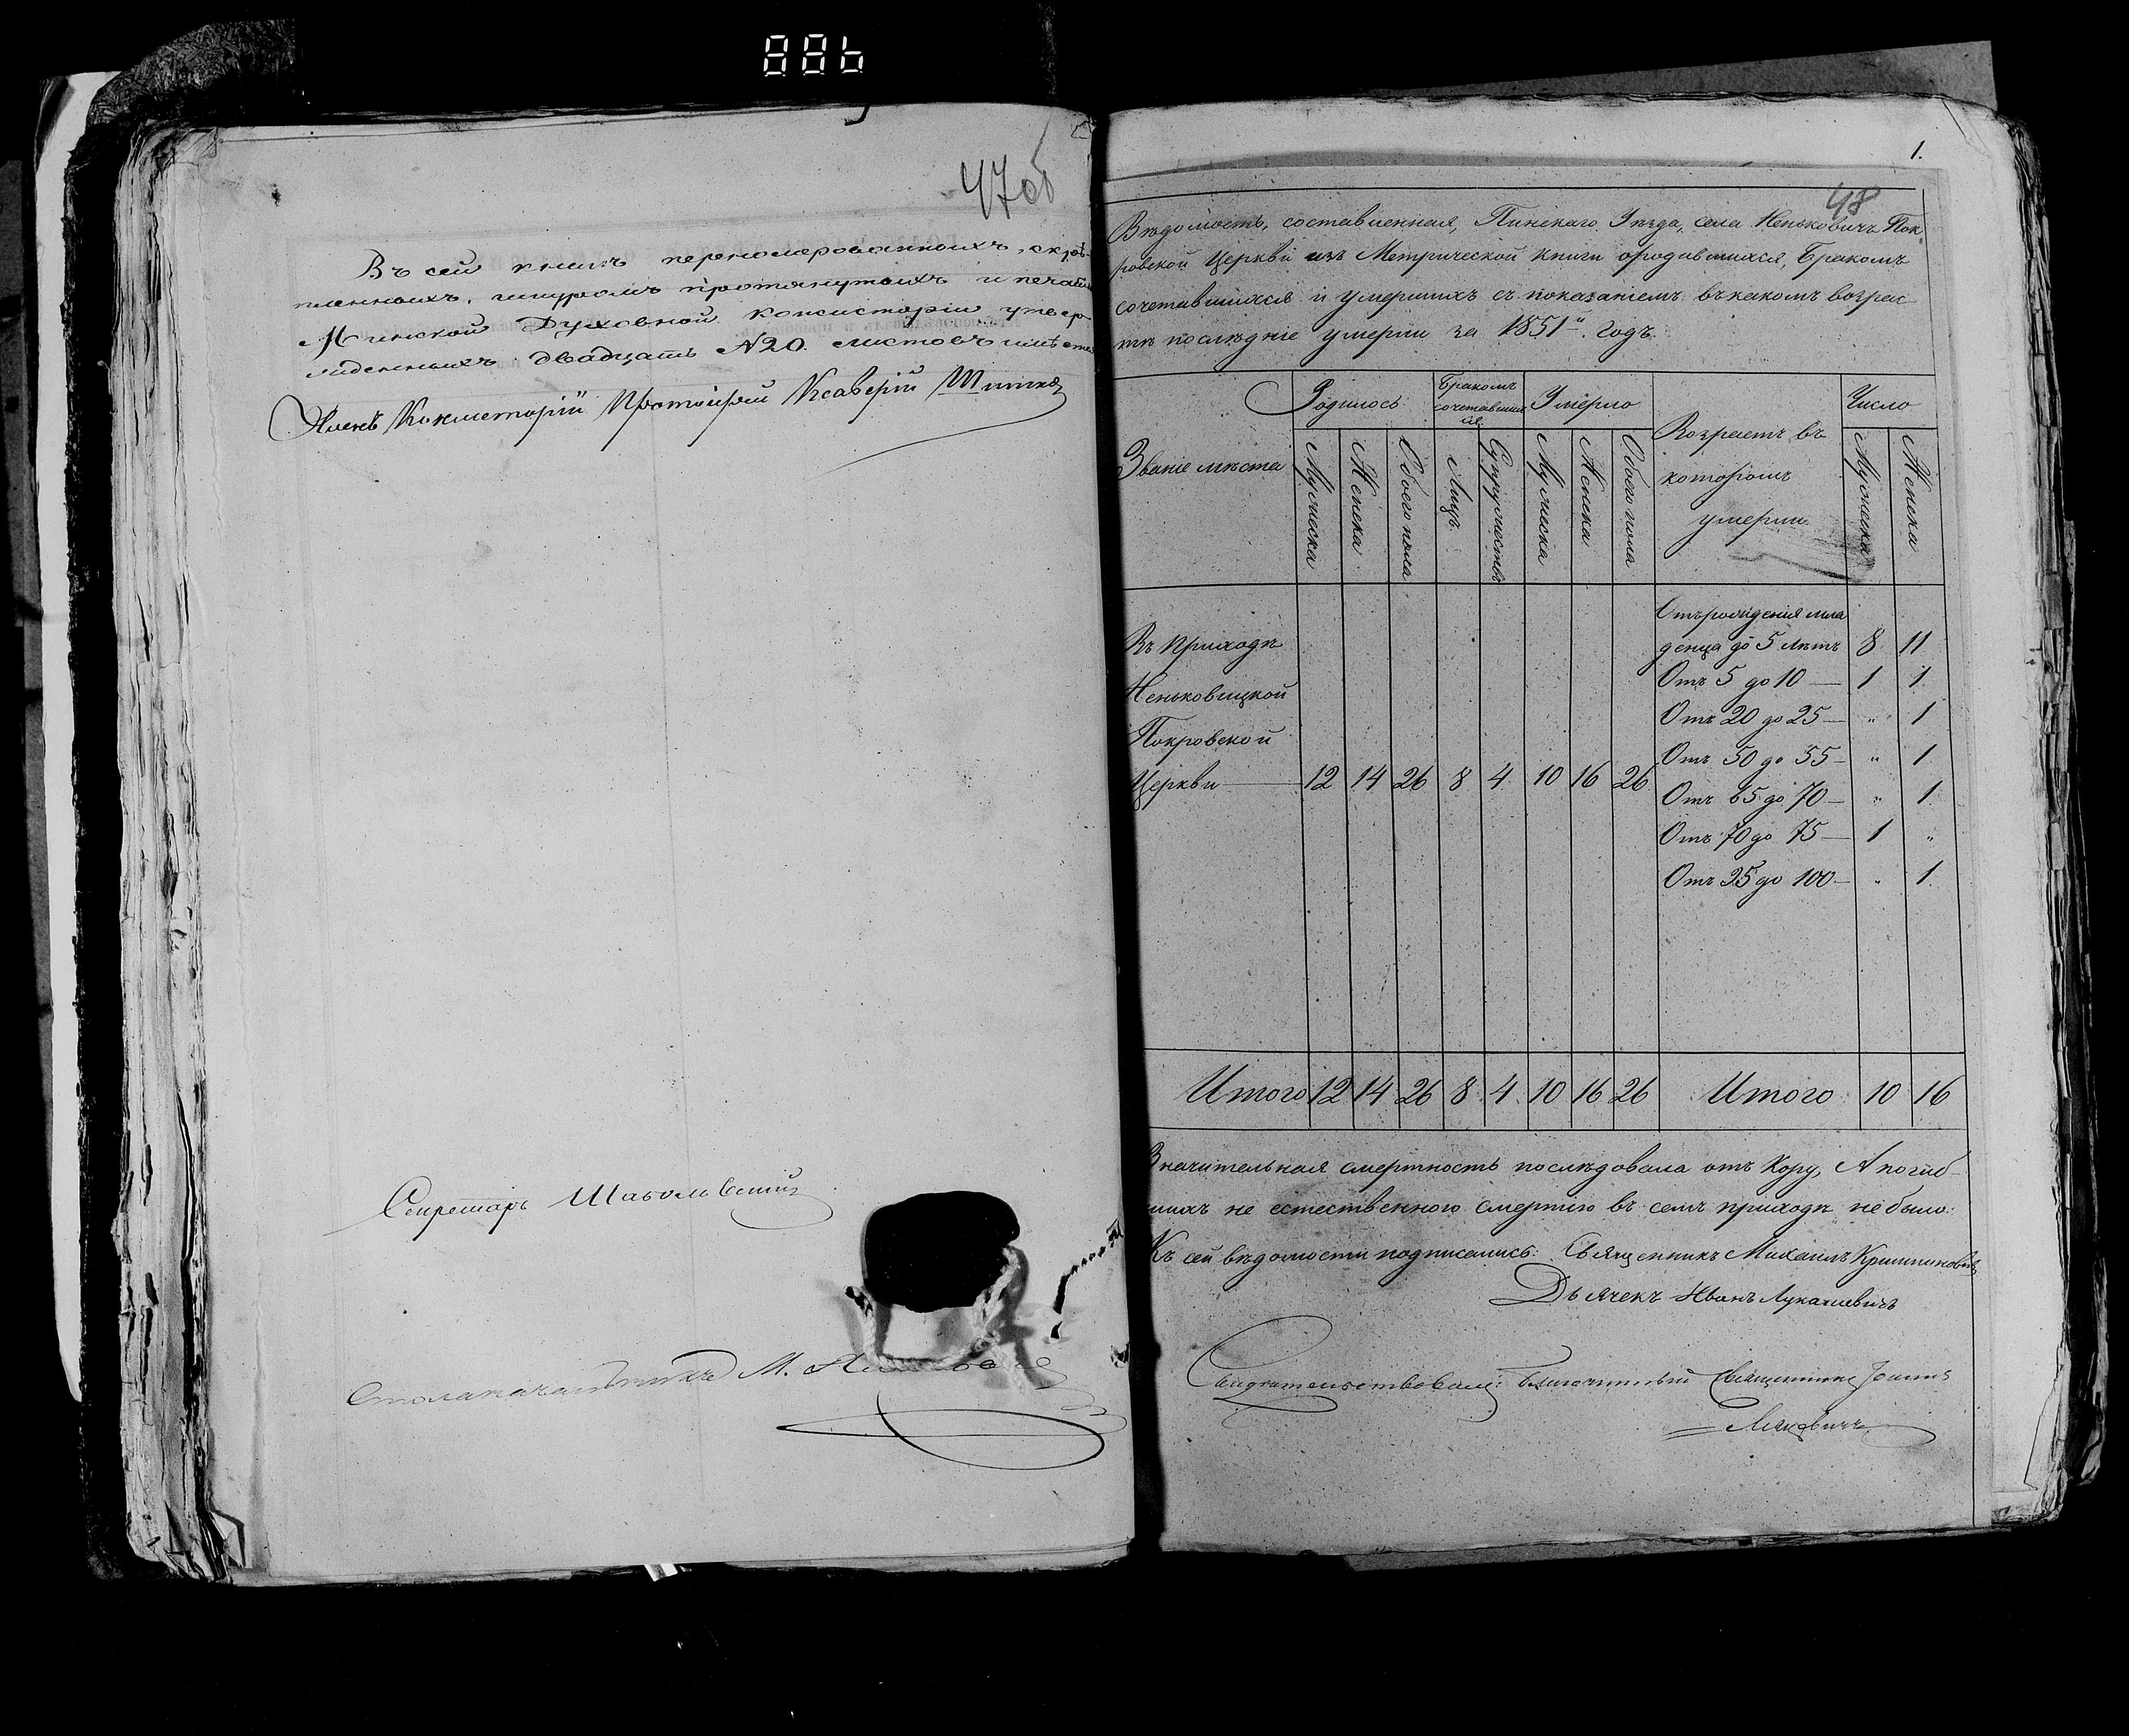 886
47об
Въ сей книгѣ перенумерованныхъ, скрѣ-
пленныхъ, шнуромъ протянутыхъ и печатью
Минской Духовной Консисторіи утвер-
жденныхъ двадцать №20. листовъ имѣется
Членъ Консисторіи Протоіерей Ксаверій
Секретарь
Столоначальникъ М.
1.
48
Вѣдомость, составленная, Пинскаго Уѣзда, села Неньковичъ Пок-
ровской Церкви изъ Метрической книги ородившихся, Бракомъ
сочетавшихся и умершихъ съ показаніемъ въ какомъ возрас-
тѣ послѣдніе умерли за 1851й. годъ.
Званіе мѣста
Родилось
Мужеска
Женска
Обоего пола
Бракомъ
сочетавших
ся
Лицъ
Супружествъ
Умерло
Мужеска
Женска
Обоего пола
Возрастъ въ
которомъ
умерли
Число
Мужеска
Женска
Отъ рожденія мла
Въ Приходѣ денца до 5 лѣтъ 8 11
Неньковицкой Отъ 5 до 10 — 1 1
Покровской Отъ 20 до 25 — „ 1
Церкви — 12 14 26 8 4 10 16 26 Отъ 50 до 55 — „ 1
Отъ 65 до 70 — „ 1
Отъ 70 до 75 — 1 „
Отъ 95 до 100 — „ 1
Итого 12 14 26 8 4 10 16 26 Итого 10 16
Значительная смертность послѣдовала отъ Кору, А погиб-
шихъ не естественною смертію въ семъ приходѣ не было.
Къ сей вѣдомости подписались: Священникъ Михаилъ
Дьячекъ Иванъ Лукашевичъ
Свидѣтельствовалъ: Благочинный Священникъ Іоаннъ